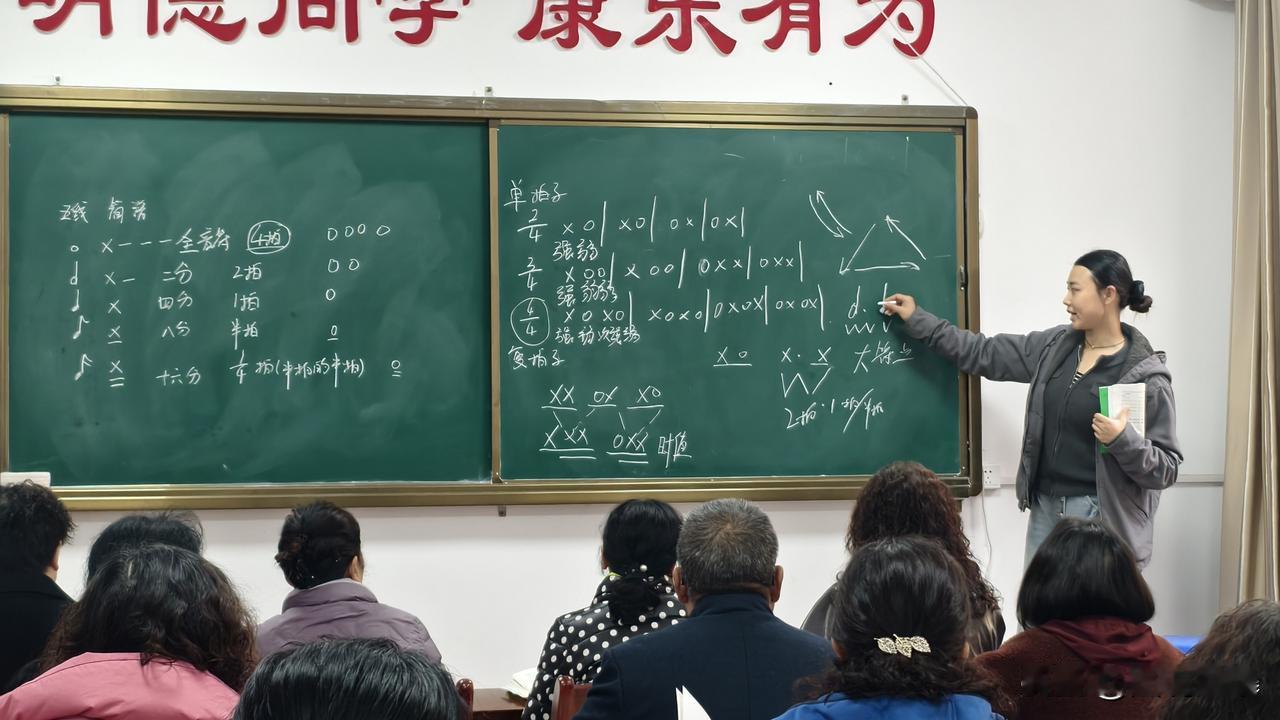 明德同学 康乐有为
五线 简谱
x - - - 全音符 4拍 0 0 0 0
x - 二分 2拍 0 0
x 四分 1拍 0
x 八分 半拍 0
x 十六分 1/4拍(半拍的半拍) 0
单拍子
2/4 x 0 | x 0 | 0 x | 0 x |
强弱
2/4 x 0 0 | x 0 0 | 0 x x | 0 x x |
强弱弱
4/4 x 0 x 0 | x 0 x 0 | 0 x 0 x | 0 x 0 x |
强弱次强弱
复拍子
x 0 x · x
2拍 · 1拍 半拍
xx 0x x0
x xx 0xx 时值